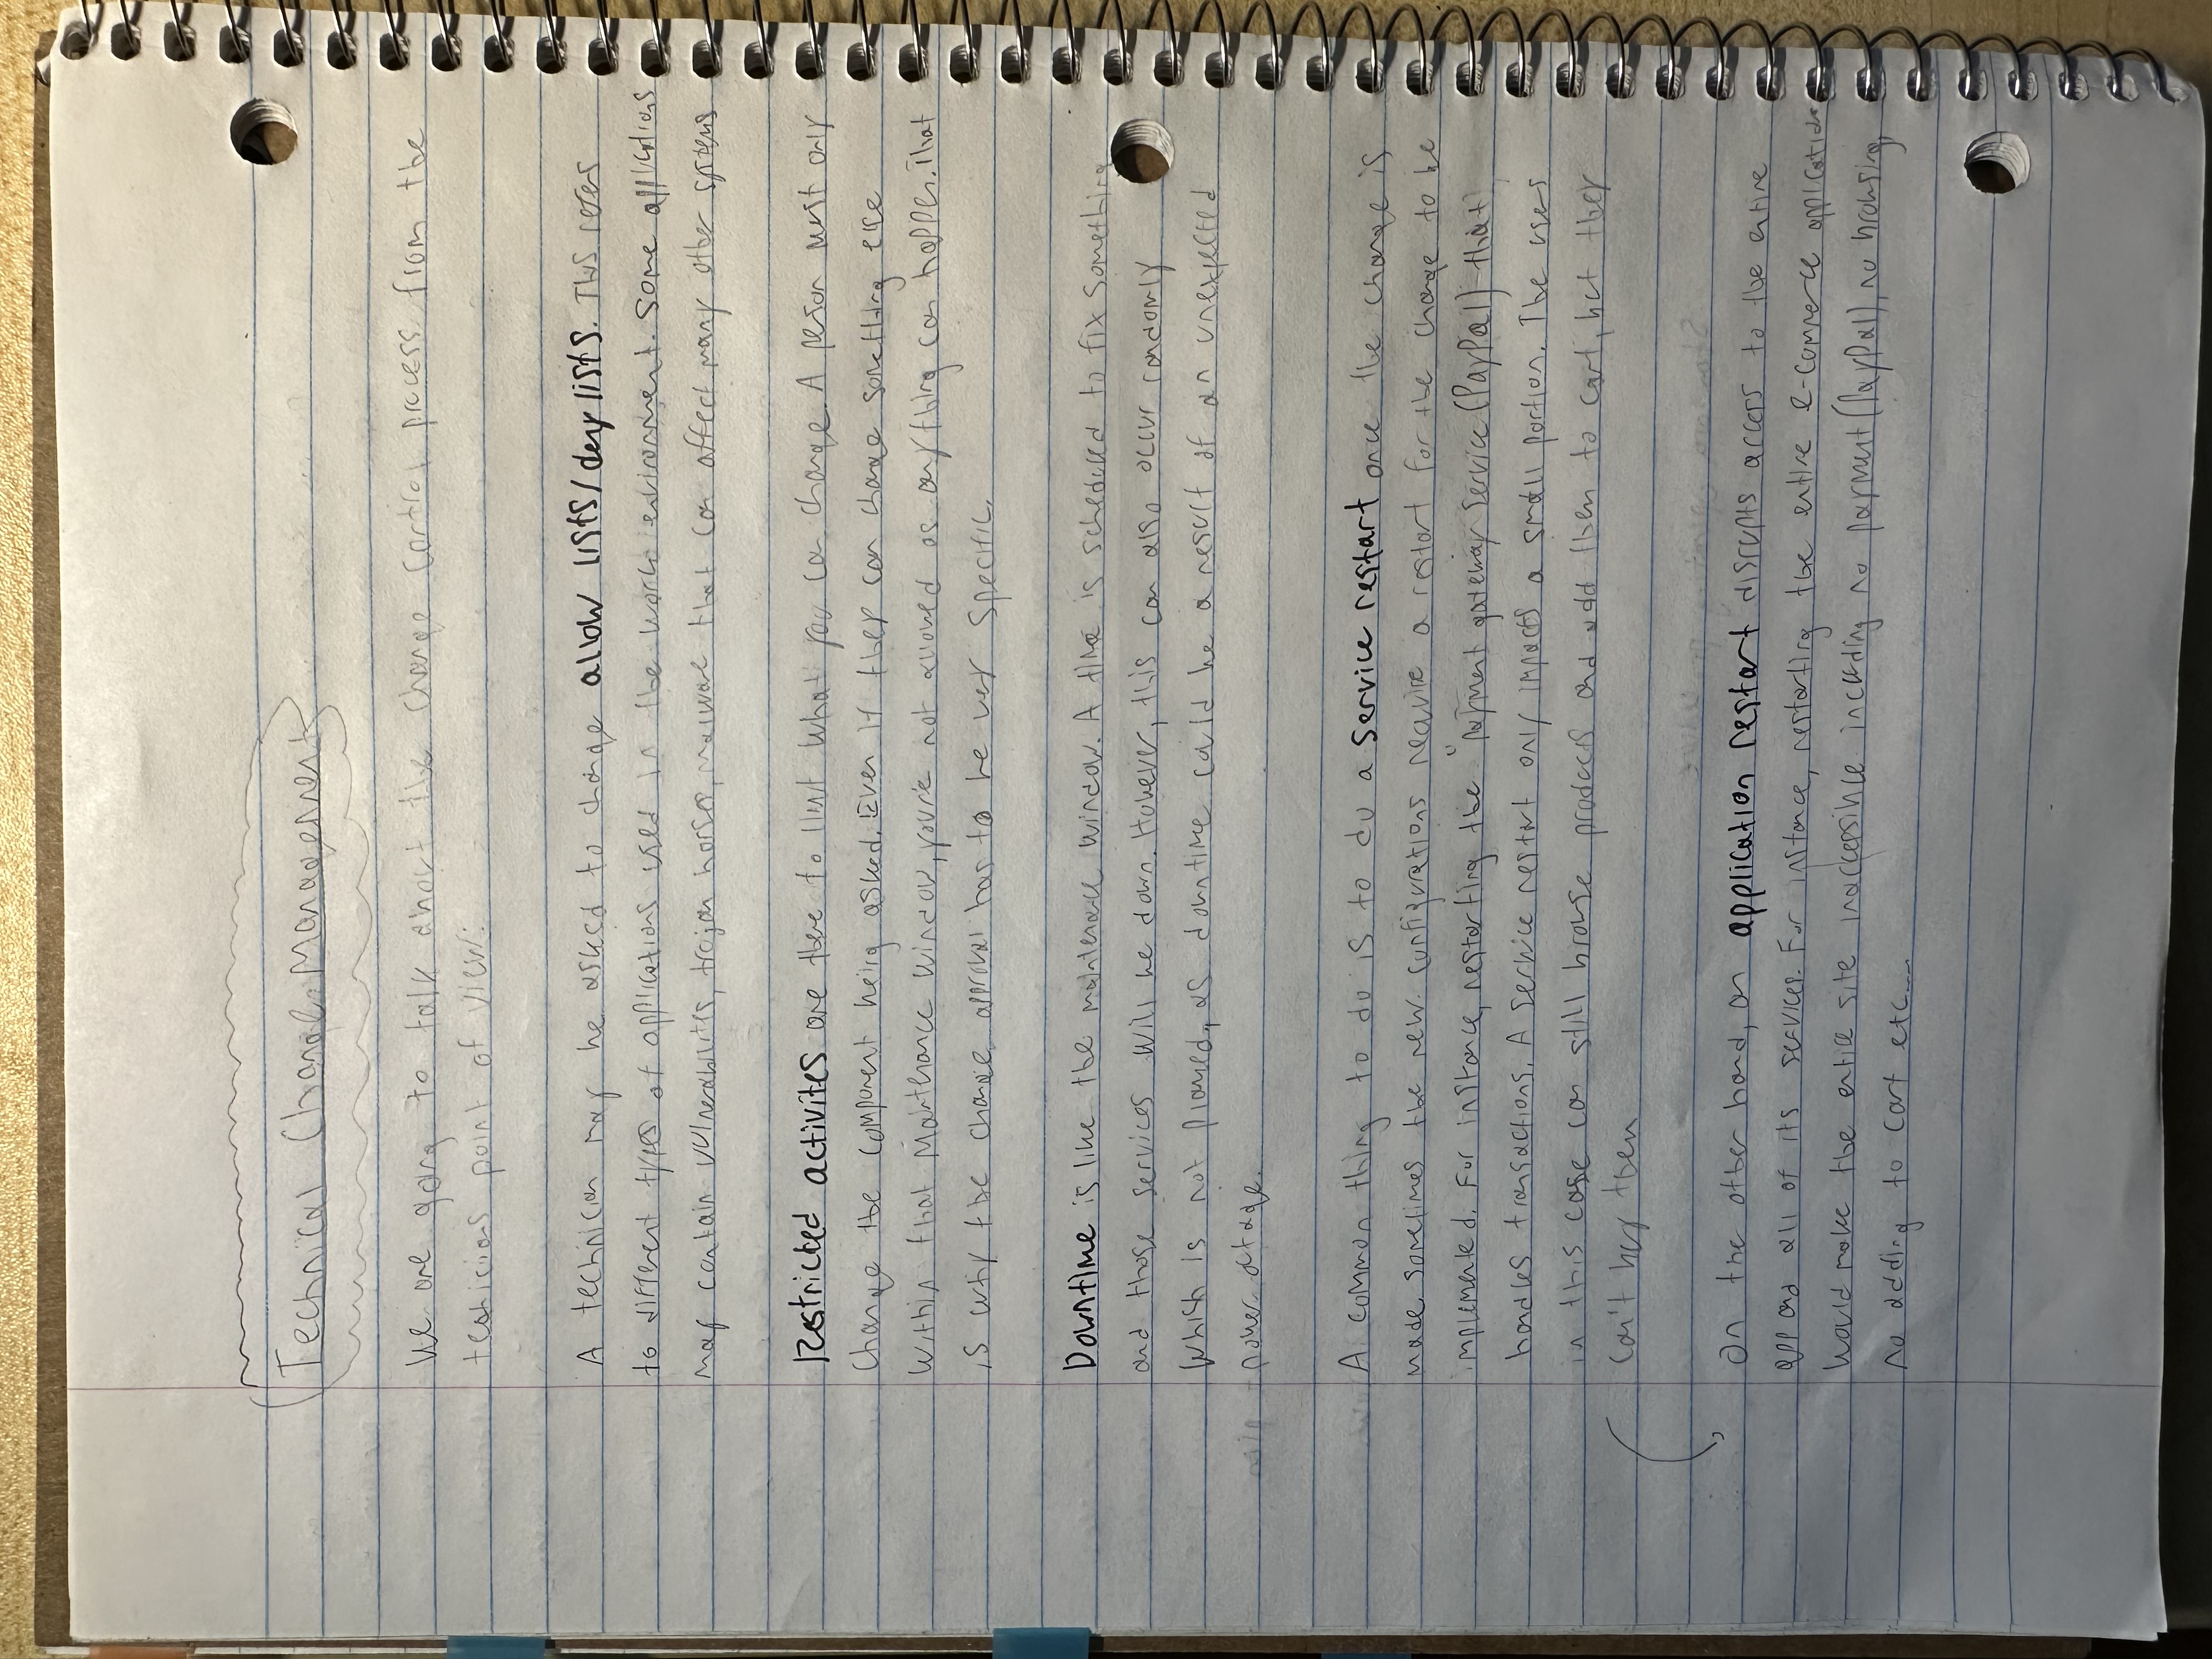 Technical Change Management
We are going to talk about the change control process from the
technicians point of view:
A technician may be asked to change allow lists/deny lists. This refers
to different types of applications used in the work environment. Some applications
may contain vulnerabilities, trojan horses, malware that can affect many other systems
Restricted activites are there to limit what you can change. A person must only
change the component being asked. Even if they can change something else
within that maintenance window, you're not allowed as anything can happen. That
is why the change approval has to be very specific.
Downtime is like the maintenance window. A time is scheduled to fix something
and those services will be down. However, this can also occur randomly
which is not planned, as downtime could be a result of an unexpected
power outage.
A common thing to do is to do a service restart once the change is
made sometimes the new configurations require a restart for the change to be
implemented. For instance, restarting the "payment gateway service (PayPal) that
handles transactions. A service restart only impacts a small portion. The users
in this case can still browse products and add them to cart, but they
can't buy them
On the other hand, an application restart disrupts access to the entire
app and all of its services. For instance, restarting the entire e-commerce application
would make the entire site inaccessible including no payment (PayPal), no browsing,
no adding to cart etc....